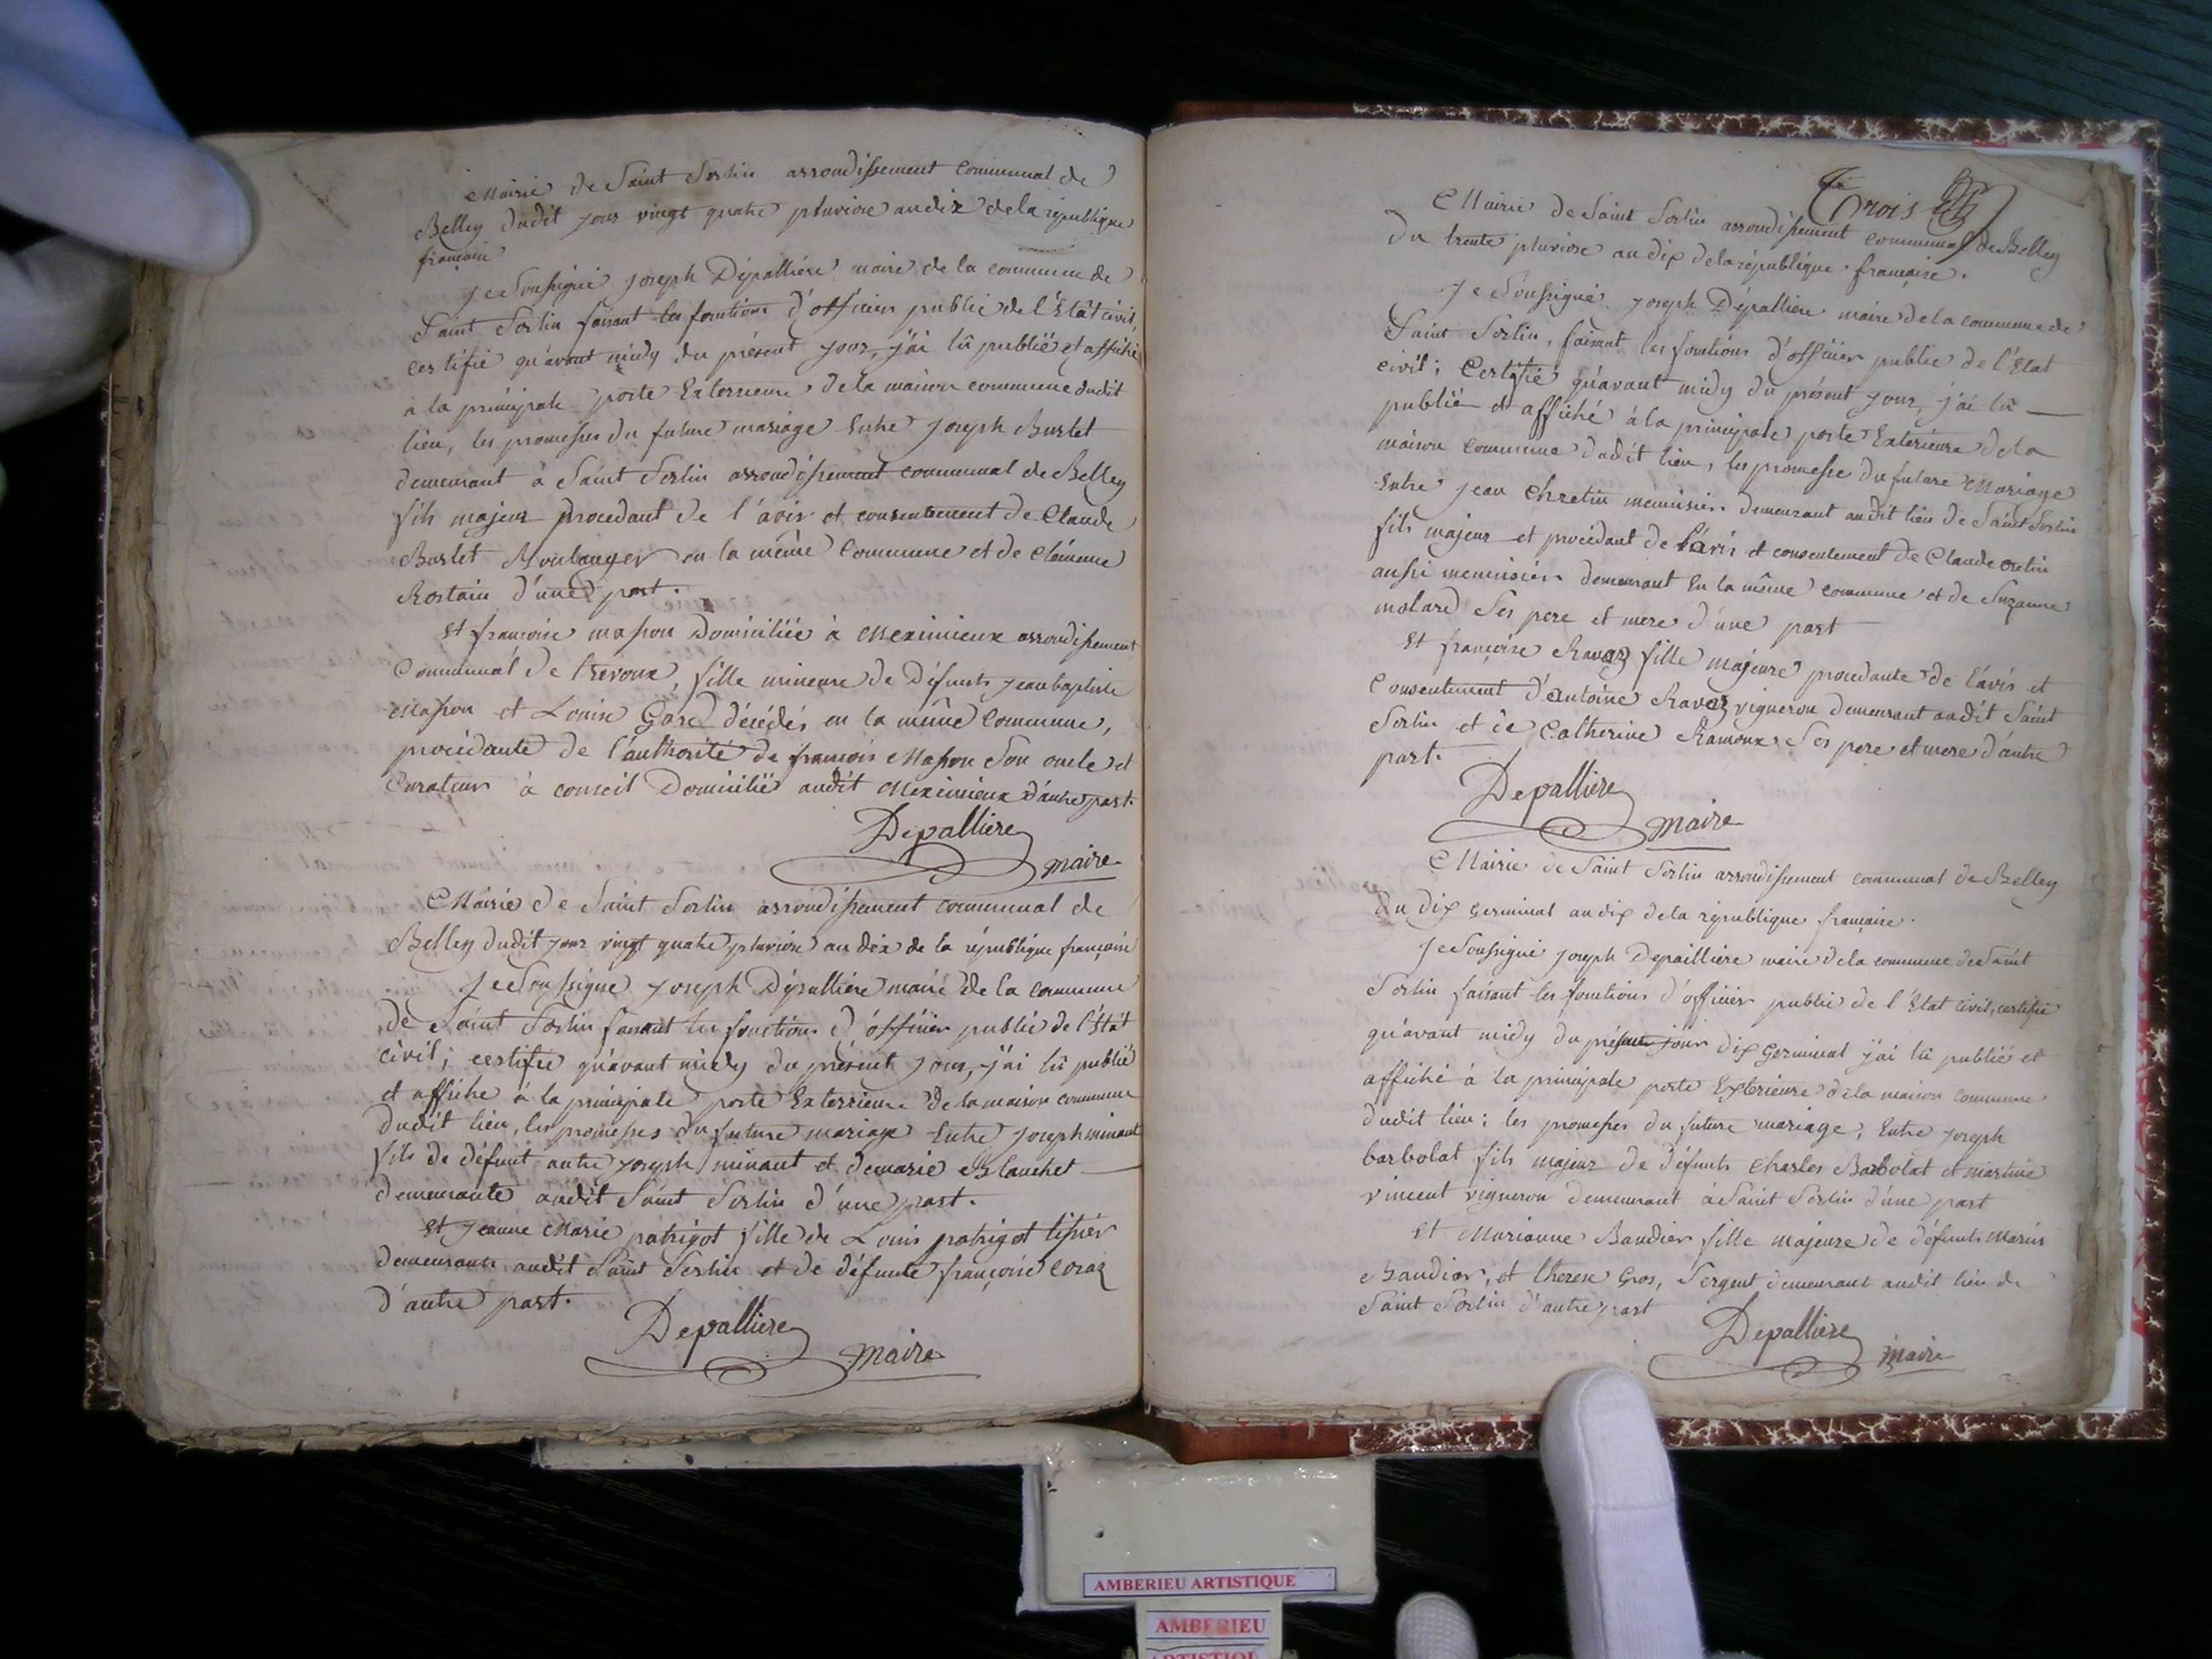 Mairie de Saint Sorlin arrondissement communal de
Belley dudit jour vingt quatre pluviose an dix de la république
française
Je soussigné joseph Dépallière maire de la commune de
Saint Sorlin faisant les fonctions d'officier public de l'Etat civil,
certifie qu'avant midy du présent jour, j'ai lû publié et affiché
a la principale porte Exterieure de la maison commune dudit
lieu, les promesses du future mariage Entre joseph Burlet
demeurant à Saint Sorlin arrondissement communal de Belley
fils majeur procedant de l'avis et consentement de Claude
Burlet Boulanger en la même commune et de Clémence
Rostain d'une part.
Et françoise masson domiciliée à Meximieux arrondissement
communal de trevoux, fille mineure de défunts jean baptiste
Masson et Louise décédés en la même commune,
procédante de l'authorité de françois Masson Son oncle et
Curateur à conseil Domicilié audit Meximieux d'autre part.
Depalliere
maire
Mairie de Saint Sorlin arrondissement communal de
Belley dudit jour vingt quatre pluviose an dix de la république française
Je Soussigné joseph Dépallière maire de la commune
de Saint Sorlin faisant les fonctions d'officier public de l'état
civil; certifie qu'avant midy du présent jour, j'ai lû publié
et affiché à la principale porte Exterrieure de la maison commune
dudit lieu, les promesses du future mariage Entre joseph minaut
fils de défunt autre joseph minaut et de marie Blanchet
demeurante audit Saint Sorlin d'une part.
Et Jeanne Marie patrigot fille de Louis patrigot tissier
demeurants audit Saint Sorlin et de défunte françoise coraz
d'autre part.
Depalliere
maire
Trois
Mairie de Saint Sorlin arrondissement communal de Belley
du trente pluviose an dix de la république française.
Je Soussigné joseph Dépalliere maire de la commune de
Saint Sorlin, faisant les fonctions d'officier public de l'Etat
civil; Certifie qu'avant midy du présent jour, j'ai lû
publié et affiché à la principale porte Exterieure de la
maison commune dudit lieu, les promesse du future Mariage
Entre jean chretin menuisier demeurant audit lieu de Saint Sorlin
fils majeur et procédant de l'avis et consentement de Claude cretin
aussi menuisier demeurant En la même commune et de Suzanne
molard Ses pere et mere d'une part
Et françoise Ravaz fille majeure procedante de l'avis et
Consentement d'antoine Ravaz vigneron demeurant audit Saint
Sorlin et de Catherine Ramoux Ses pere et mere d'autre
part.
Depalliere
maire
Mairie de Saint Sorlin arrondissement communal de Belley
du dix germinal an dix de la république française.
Je Soussigné joseph Depailliere maire de la commune de Saint
Sorlin faisant les fonctions d'officier public de l'Etat civil, certifie
qu'avant midy du présent jour dix germinal j'ai lû publié et
affiché à la principale porte Exterieure de la maison commune
dudit lieu; les promesses du future mariage, Entre joseph
barbolat fils majeur de défunts charles Barbolat et martine
vincent vigneron demeurant à Saint Sorlin d'une part
Et Marianne Baudier fille majeure de défunts
Baudier, et therese Gros, demeurant audit lieu de
Saint Sorlin d'autre part
Depalliere
maire
AMBERIEU ARTISTIQUE
AMBERIEU
ARTISTIQUE